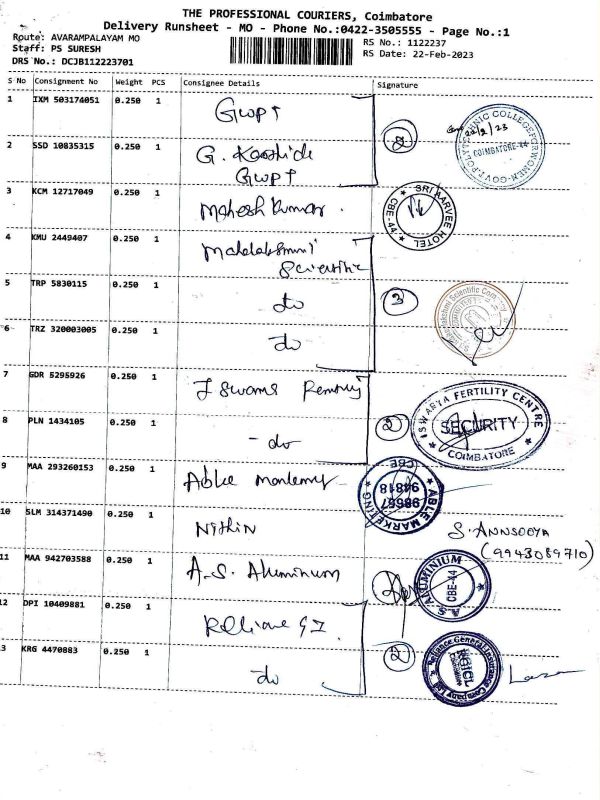 THE PROFESSIONAL COURIERS, Coimbatore
Delivery Runsheet - MO - Phone No.:0422-3505555 - Page No.:1
Route: AVARAMPALAYAM MO
Staff: PS SURESH
DRS No.: DCJB112223701
RS No.: 1122237
RS Date: 22-Feb-2023
S No Consignment No Weight PCS Consignee Details Signature
1 IXM 503174051 0.250 1 GWPT
22/2/23
2 SSD 10835315 0.250 1 G.
GWPT
2
COIMBATORE-44
3 KCM 12717049 0.250 1 Mahesh Kumar.
SRI AARVEE HOTEL CBE-44
4 KMU 2449407 0.250 1 Mahalakshmi
Scientific
5 TRP 5830115 0.250 1 do
3
6 TRZ 320003005 0.250 1 do
7 GDR 5295926 0.250 1
ISWARYA FERTILITY CENTRE
SECURITY
COIMBATORE
8 PLN 1434105 0.250 1 - do
2
9 MAA 293260153 0.250 1 Able
ABLE MARKETING CBE
98667
94818
10 SLM 314371490 0.250 1 Nithin
S. ANNSOOYA
(9943089710)
11 MAA 942703588 0.250 1 A.S. Aluminium
A.S. ALUMINIUM
CBE-44
12 DPI 10409881 0.250 1 Reliance GI.
3 KRG 4470883 0.250 1 do
2
Reliance General Insurance Company Ltd
RGICL